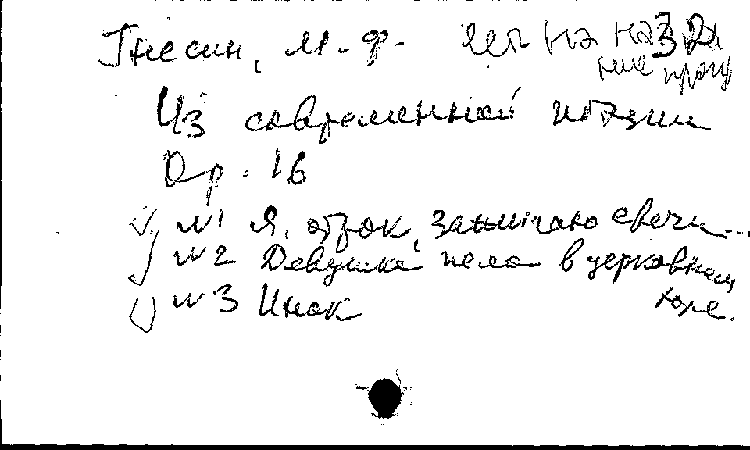 Гнесин, М. Ф.
Из современной поэзии
Ор. 16
№ 1 Я, отрок, зажигаю свечи...
№ 2 Девушка пела в церковном хоре.
№ 3 Инок